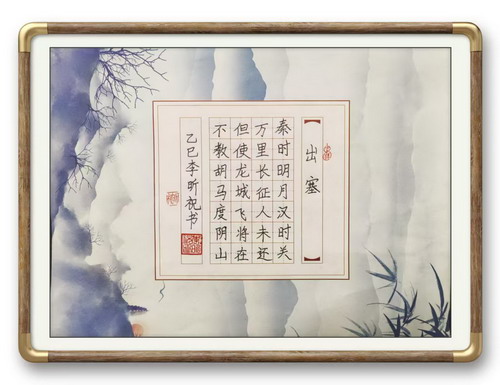 出塞
秦时明月汉时关
万里长征人未还
但使龙城飞将在
不教胡马度阴山
乙巳李昕祝书